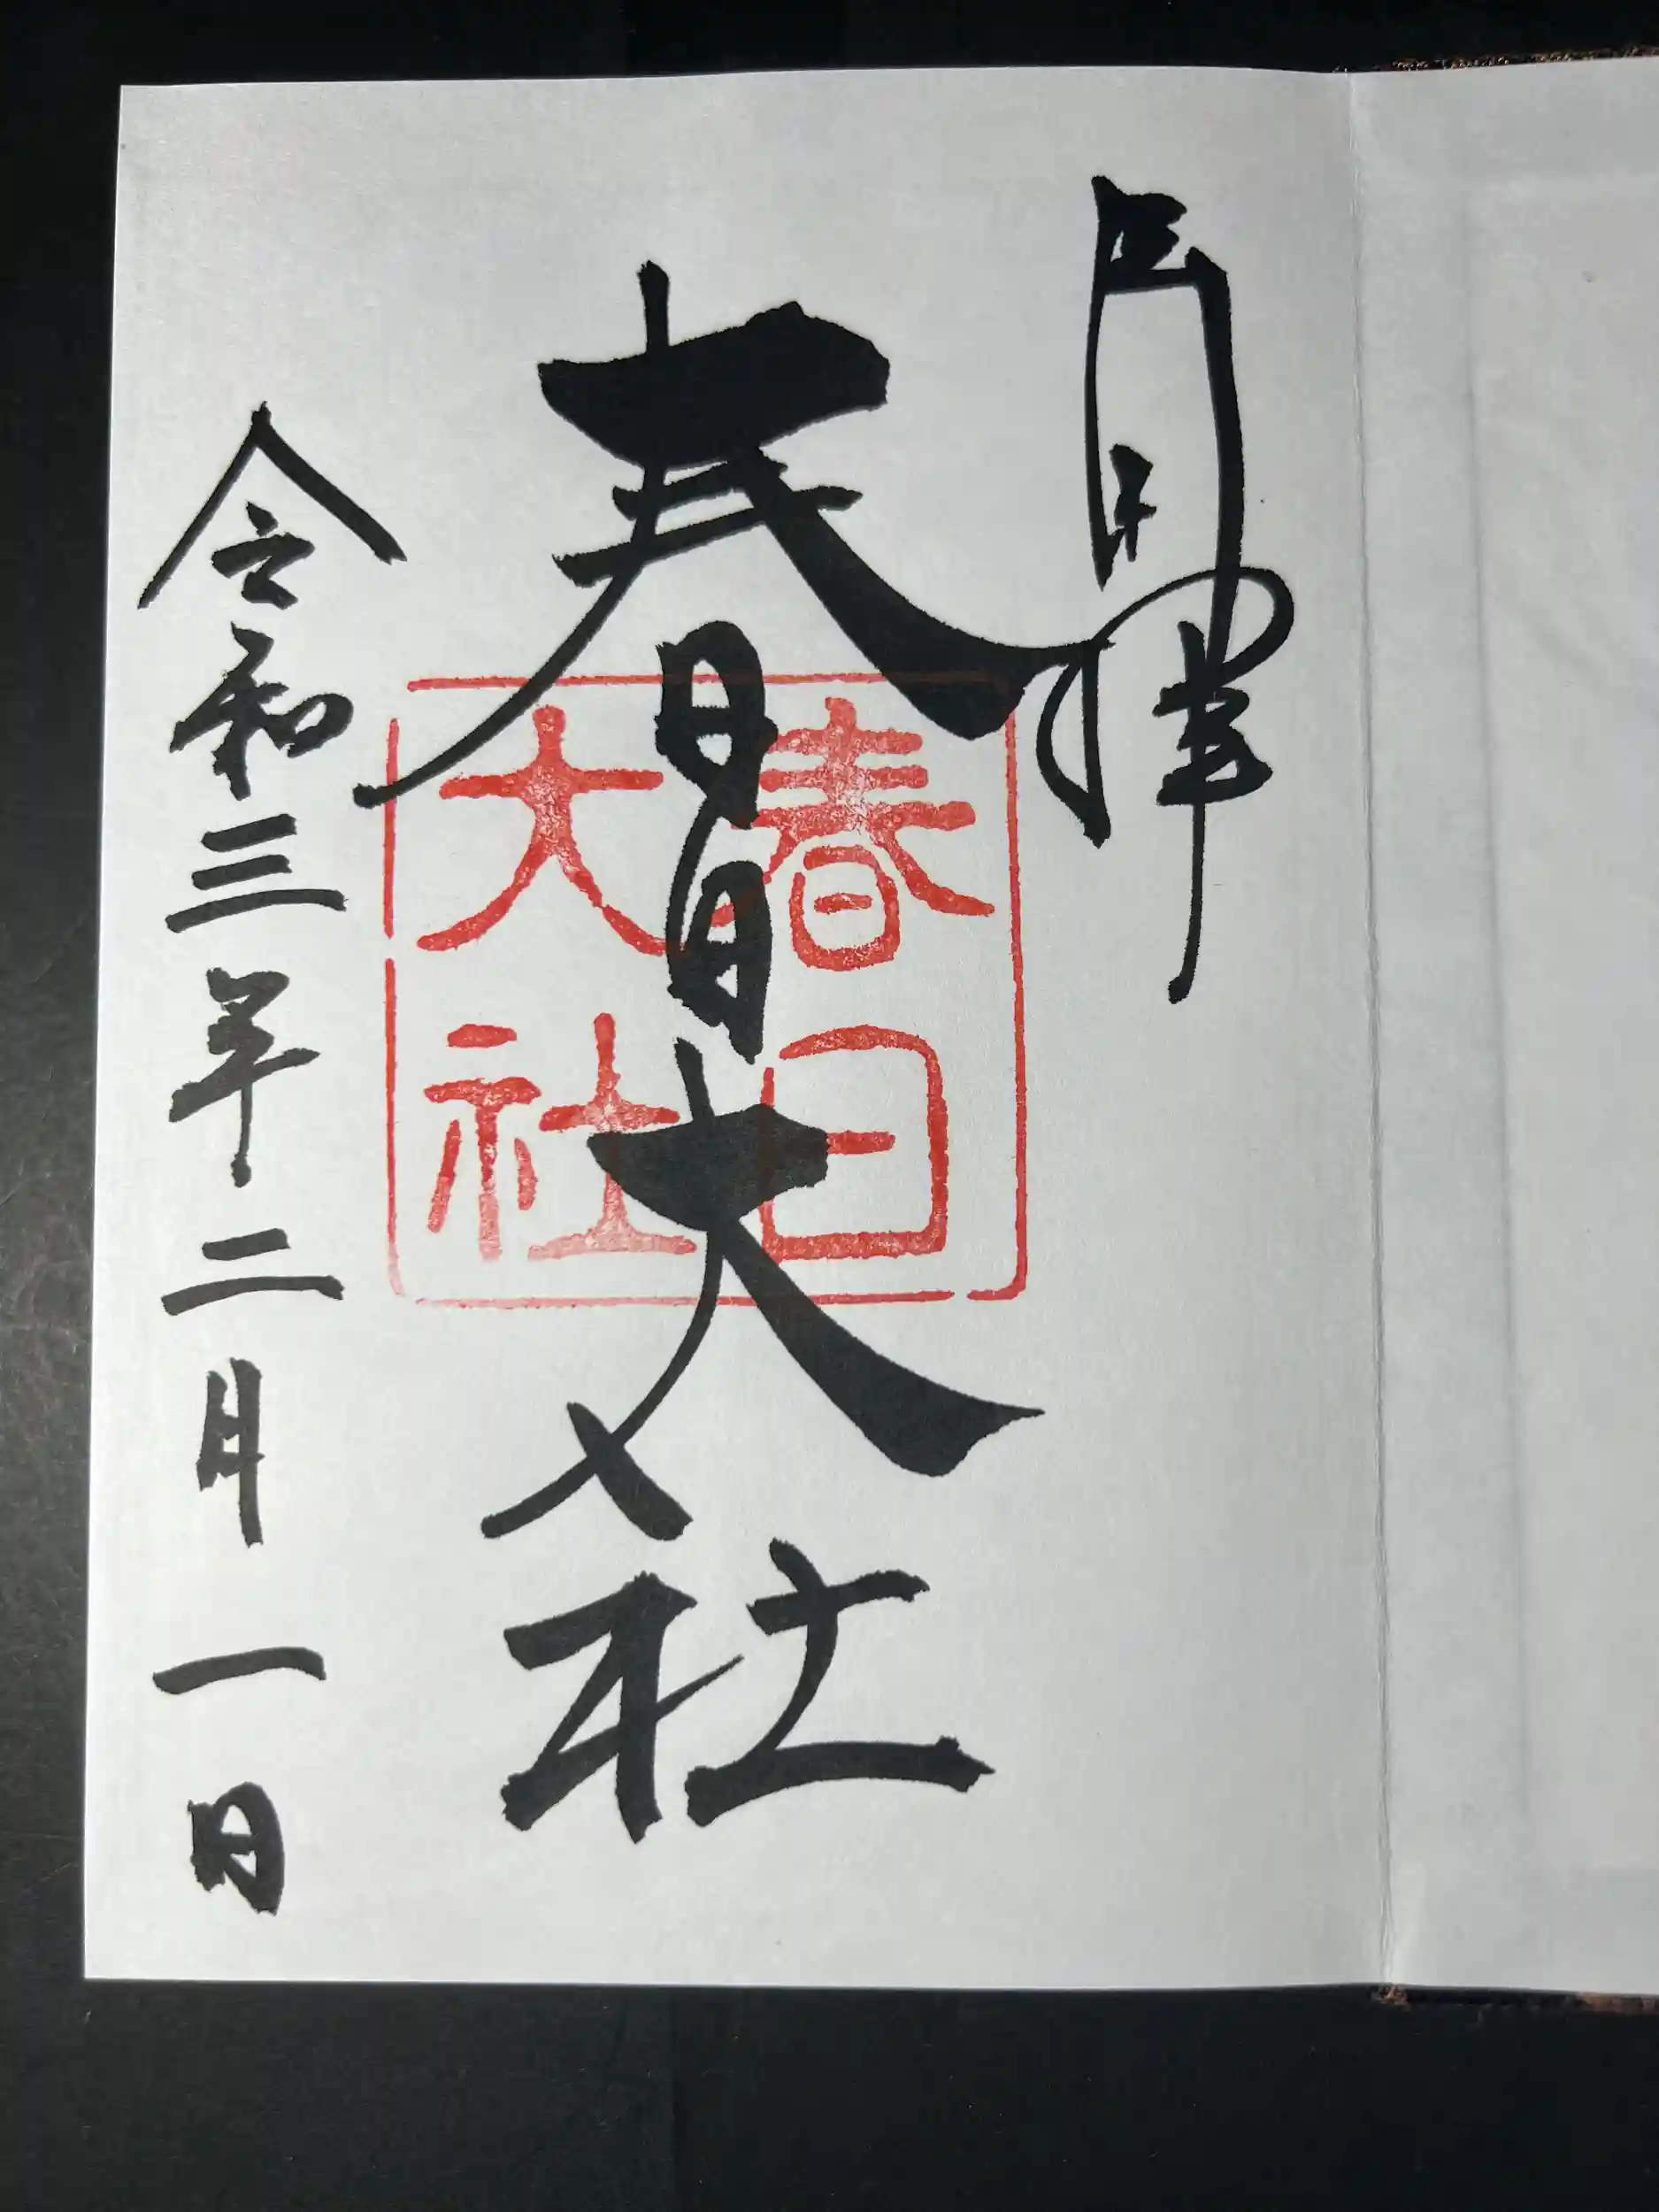 拝
春日大社
令和三年二月一日
春日
大社